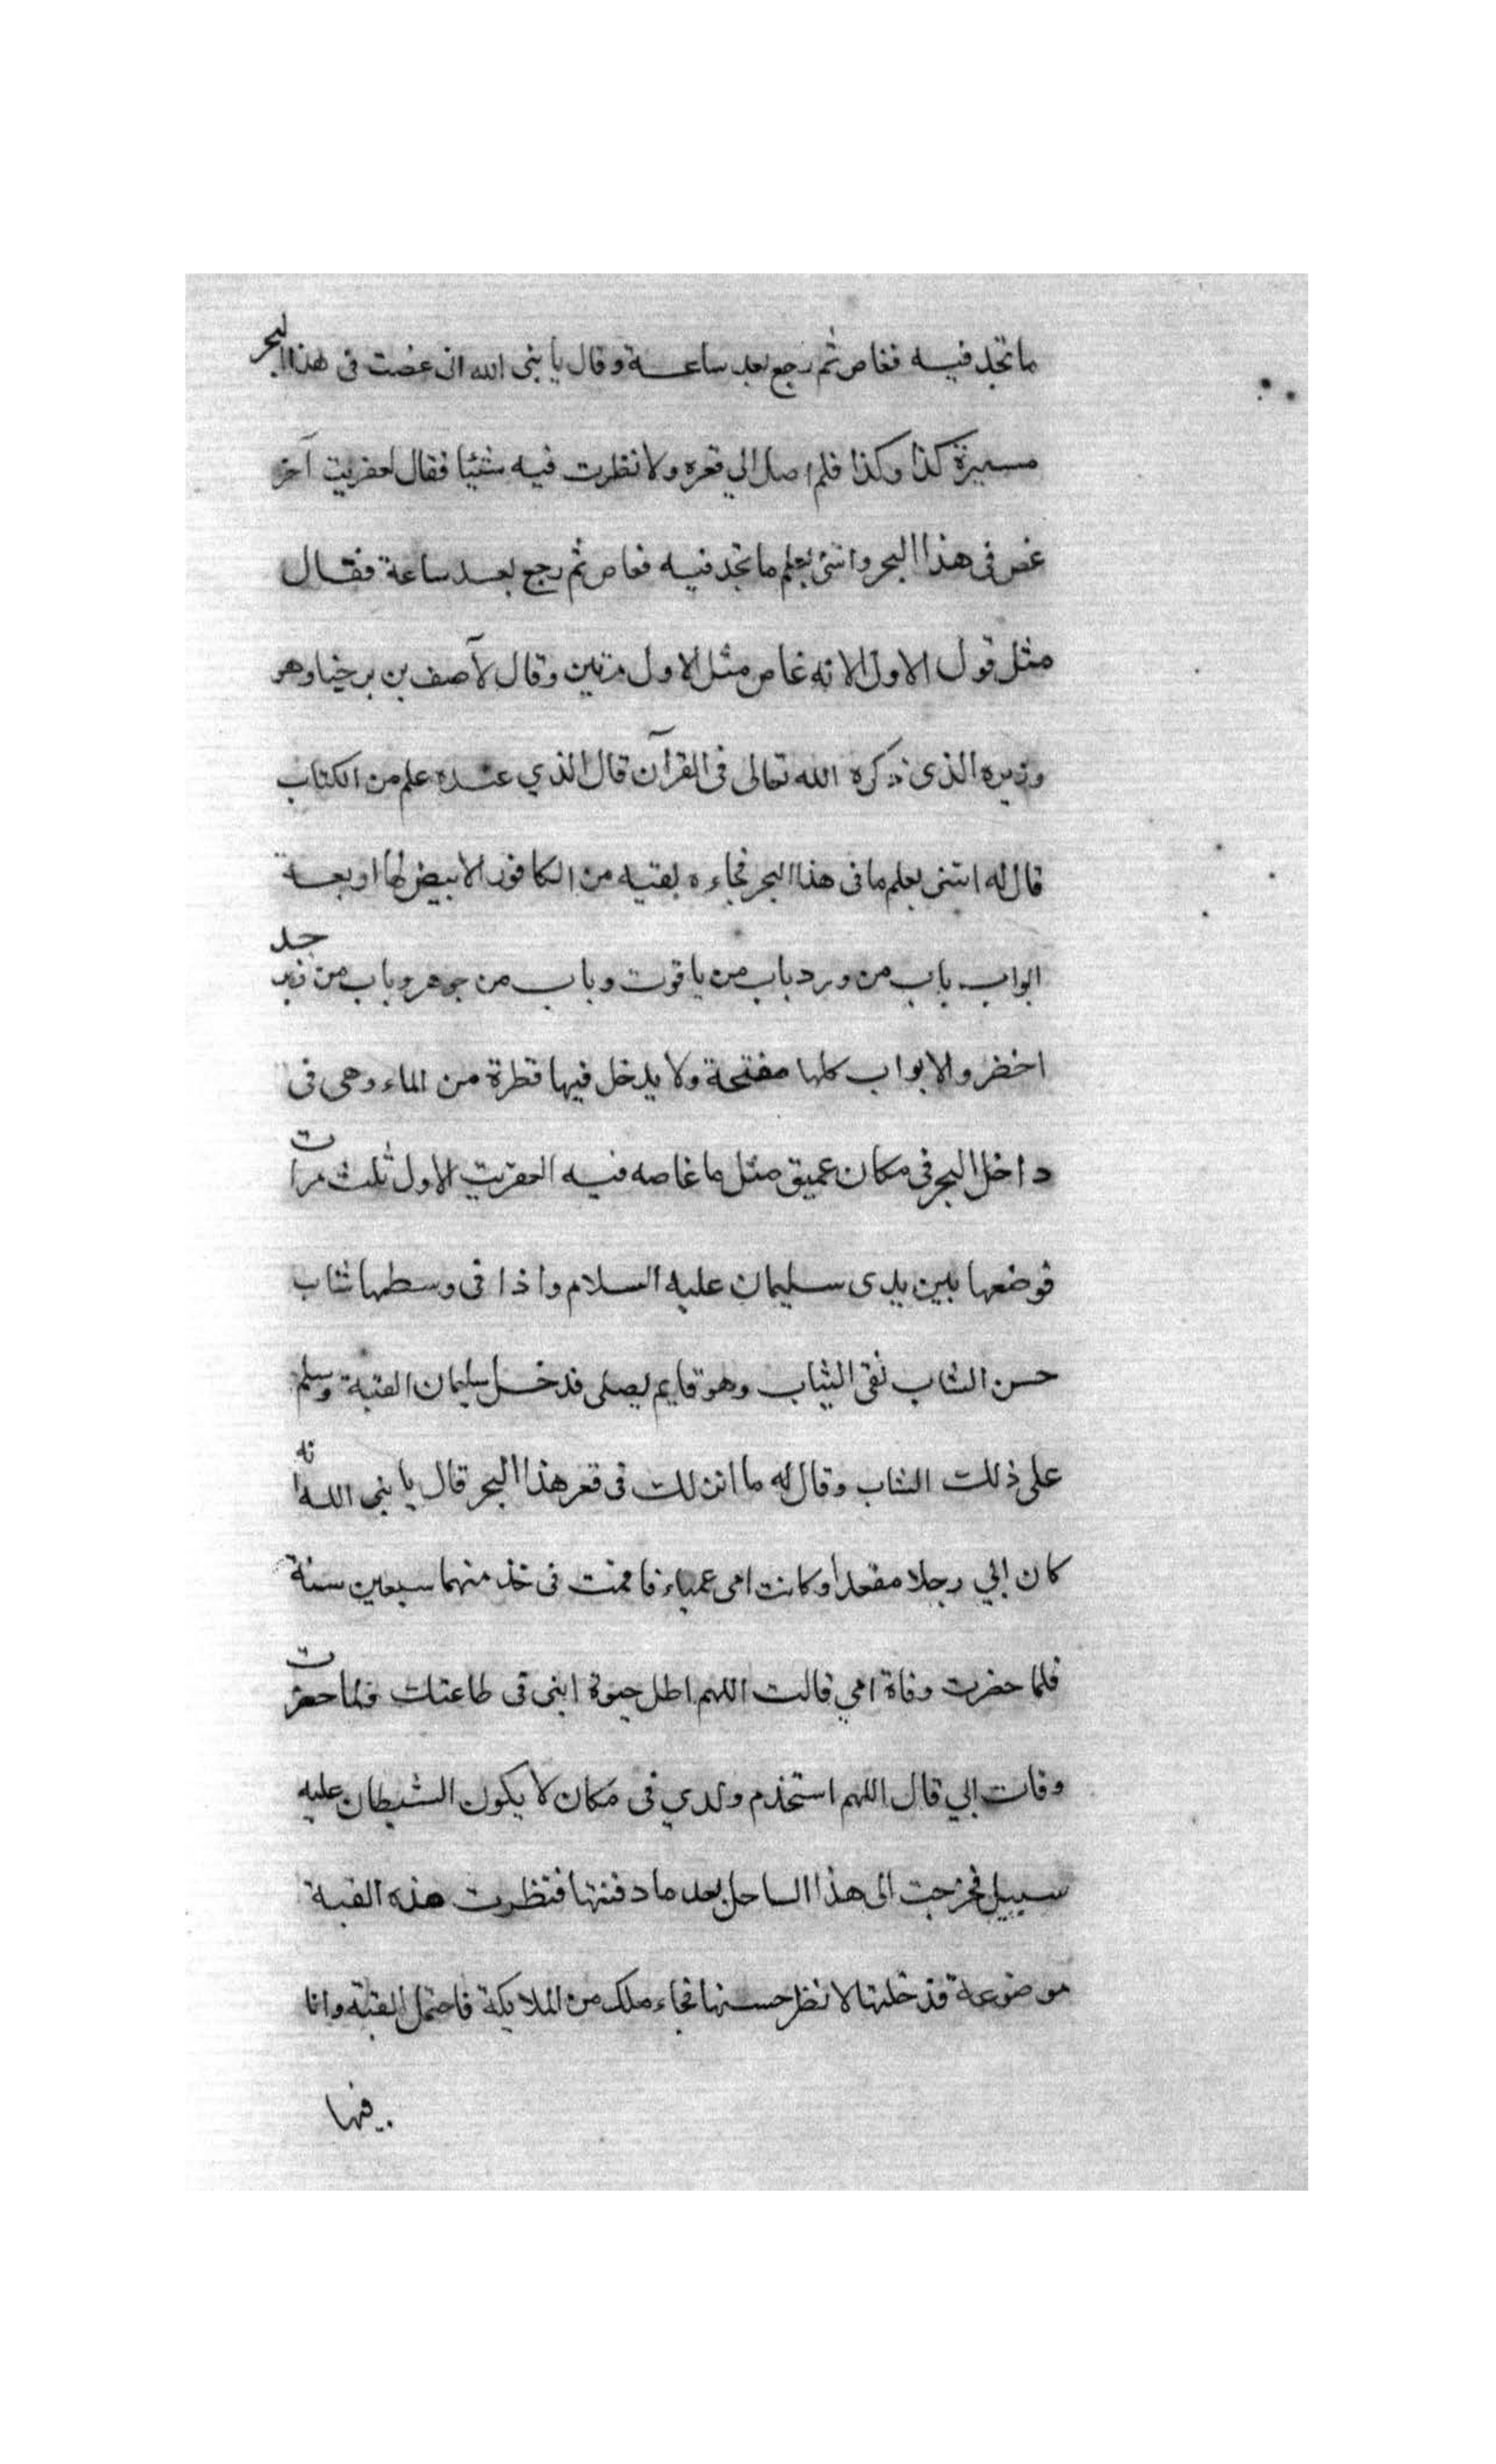 ما تجد فيه فغاص ثم رجع بعد ساعة وقال يا نبى الله انى غضت فى هذا البحر
مسيرة كذا وكذا فلم اصل الي قعره ولا نظرت فيه شيئا فقال لعفريت آخر
غص فى هذا البحر وائتنى بعلم ما تجد فيه فغاص ثم رجع بعد ساعة فقال
مثل قول الاول الا انه غاص مثل الاول مرتين وقال لآصف بن برخيا وهو
وزيره الذى ذكره الله تعالى فى القرآن قال الذي عنده علم من الكتاب
قال له ائتنى بعلم ما فى هذا البحر فجاءه بقبه من الكافور الابيض لها اربعة
ابواب باب من ورد باب من ياقوت وباب من جوهر وباب من زبرجد
اخضر والابواب كلها مفتحة ولا يدخل فيها قطرة من الماء وهى فى
داخل البحر فى مكان عميق مثل ما غاصه فيه العفريت الاول ثلث مرات
فوضعها بين يدى سليمان عليه السلام واذا فى وسطها شاب
حسن الشاب نقى الثياب وهو قايم يصلى فدخل سليمان القبة وسلم
على ذلك الشاب وقال له ما انزلك فى قعر هذا البحر قال يا نبى الله انه
كان ابي رجلا مقعدا وكانت امى عمياء فاقمت فى خدمتهما سبعين سنة
فلما حضرت وفاة امي قالت اللهم اطل حيوة ابنى فى طاعتك فلما حضرت
وفات ابي قال اللهم استخدم ولدي فى مكان لا يكون الشيطان عليه
سبيل فخرجت الى هذا الساحل بعد ما دفنتها فنظرت هذه القبة
موضوعة فدخلتها لانظر حسنها فجاء ملك من الملايكة فاحتمل القبة وانا
فيها